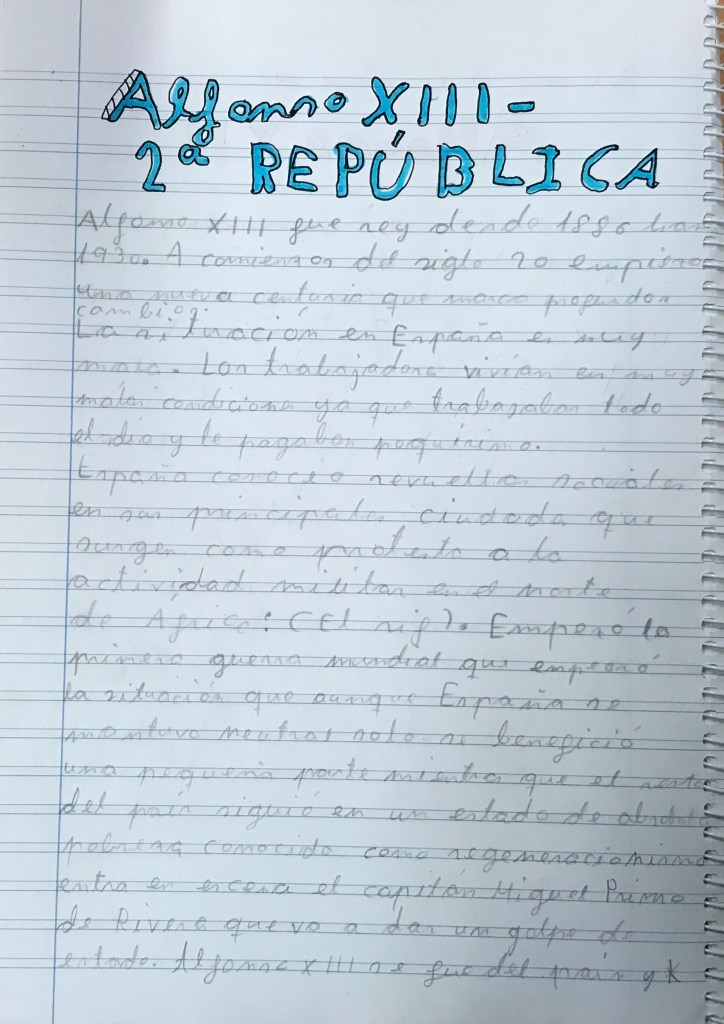 Alfonso XIII -
2ª REPÚBLICA
Alfonso XIII fue rey desde 1886 has
1930. A comienzos del siglo 20 empieza
una nueva centuria que marco profundos
cambios.
La situación en España es muy
mala. Los trabajadores vivían en muy
malas condiciones ya que trabagaban todo
el día y le pagaban poquísimo.
España conocio revueltas sociales
en sus principales ciudades que
surgen como protesta a la
actividad militar en el norte
de Africa: (El rif). Empezó la
primera guerra mundial que empeoró
la situación que aunque España se
mantuvo neutral solo se benefició
una pequeña parte mientras que el resto
del país siguió en un estado de absoluta
pobreza conocido como regeneracionismo
entra en escena el capitán Miguel Primo
de Rivera que va a dar un golpe de
estado. Alfonso XIII se fue del país y